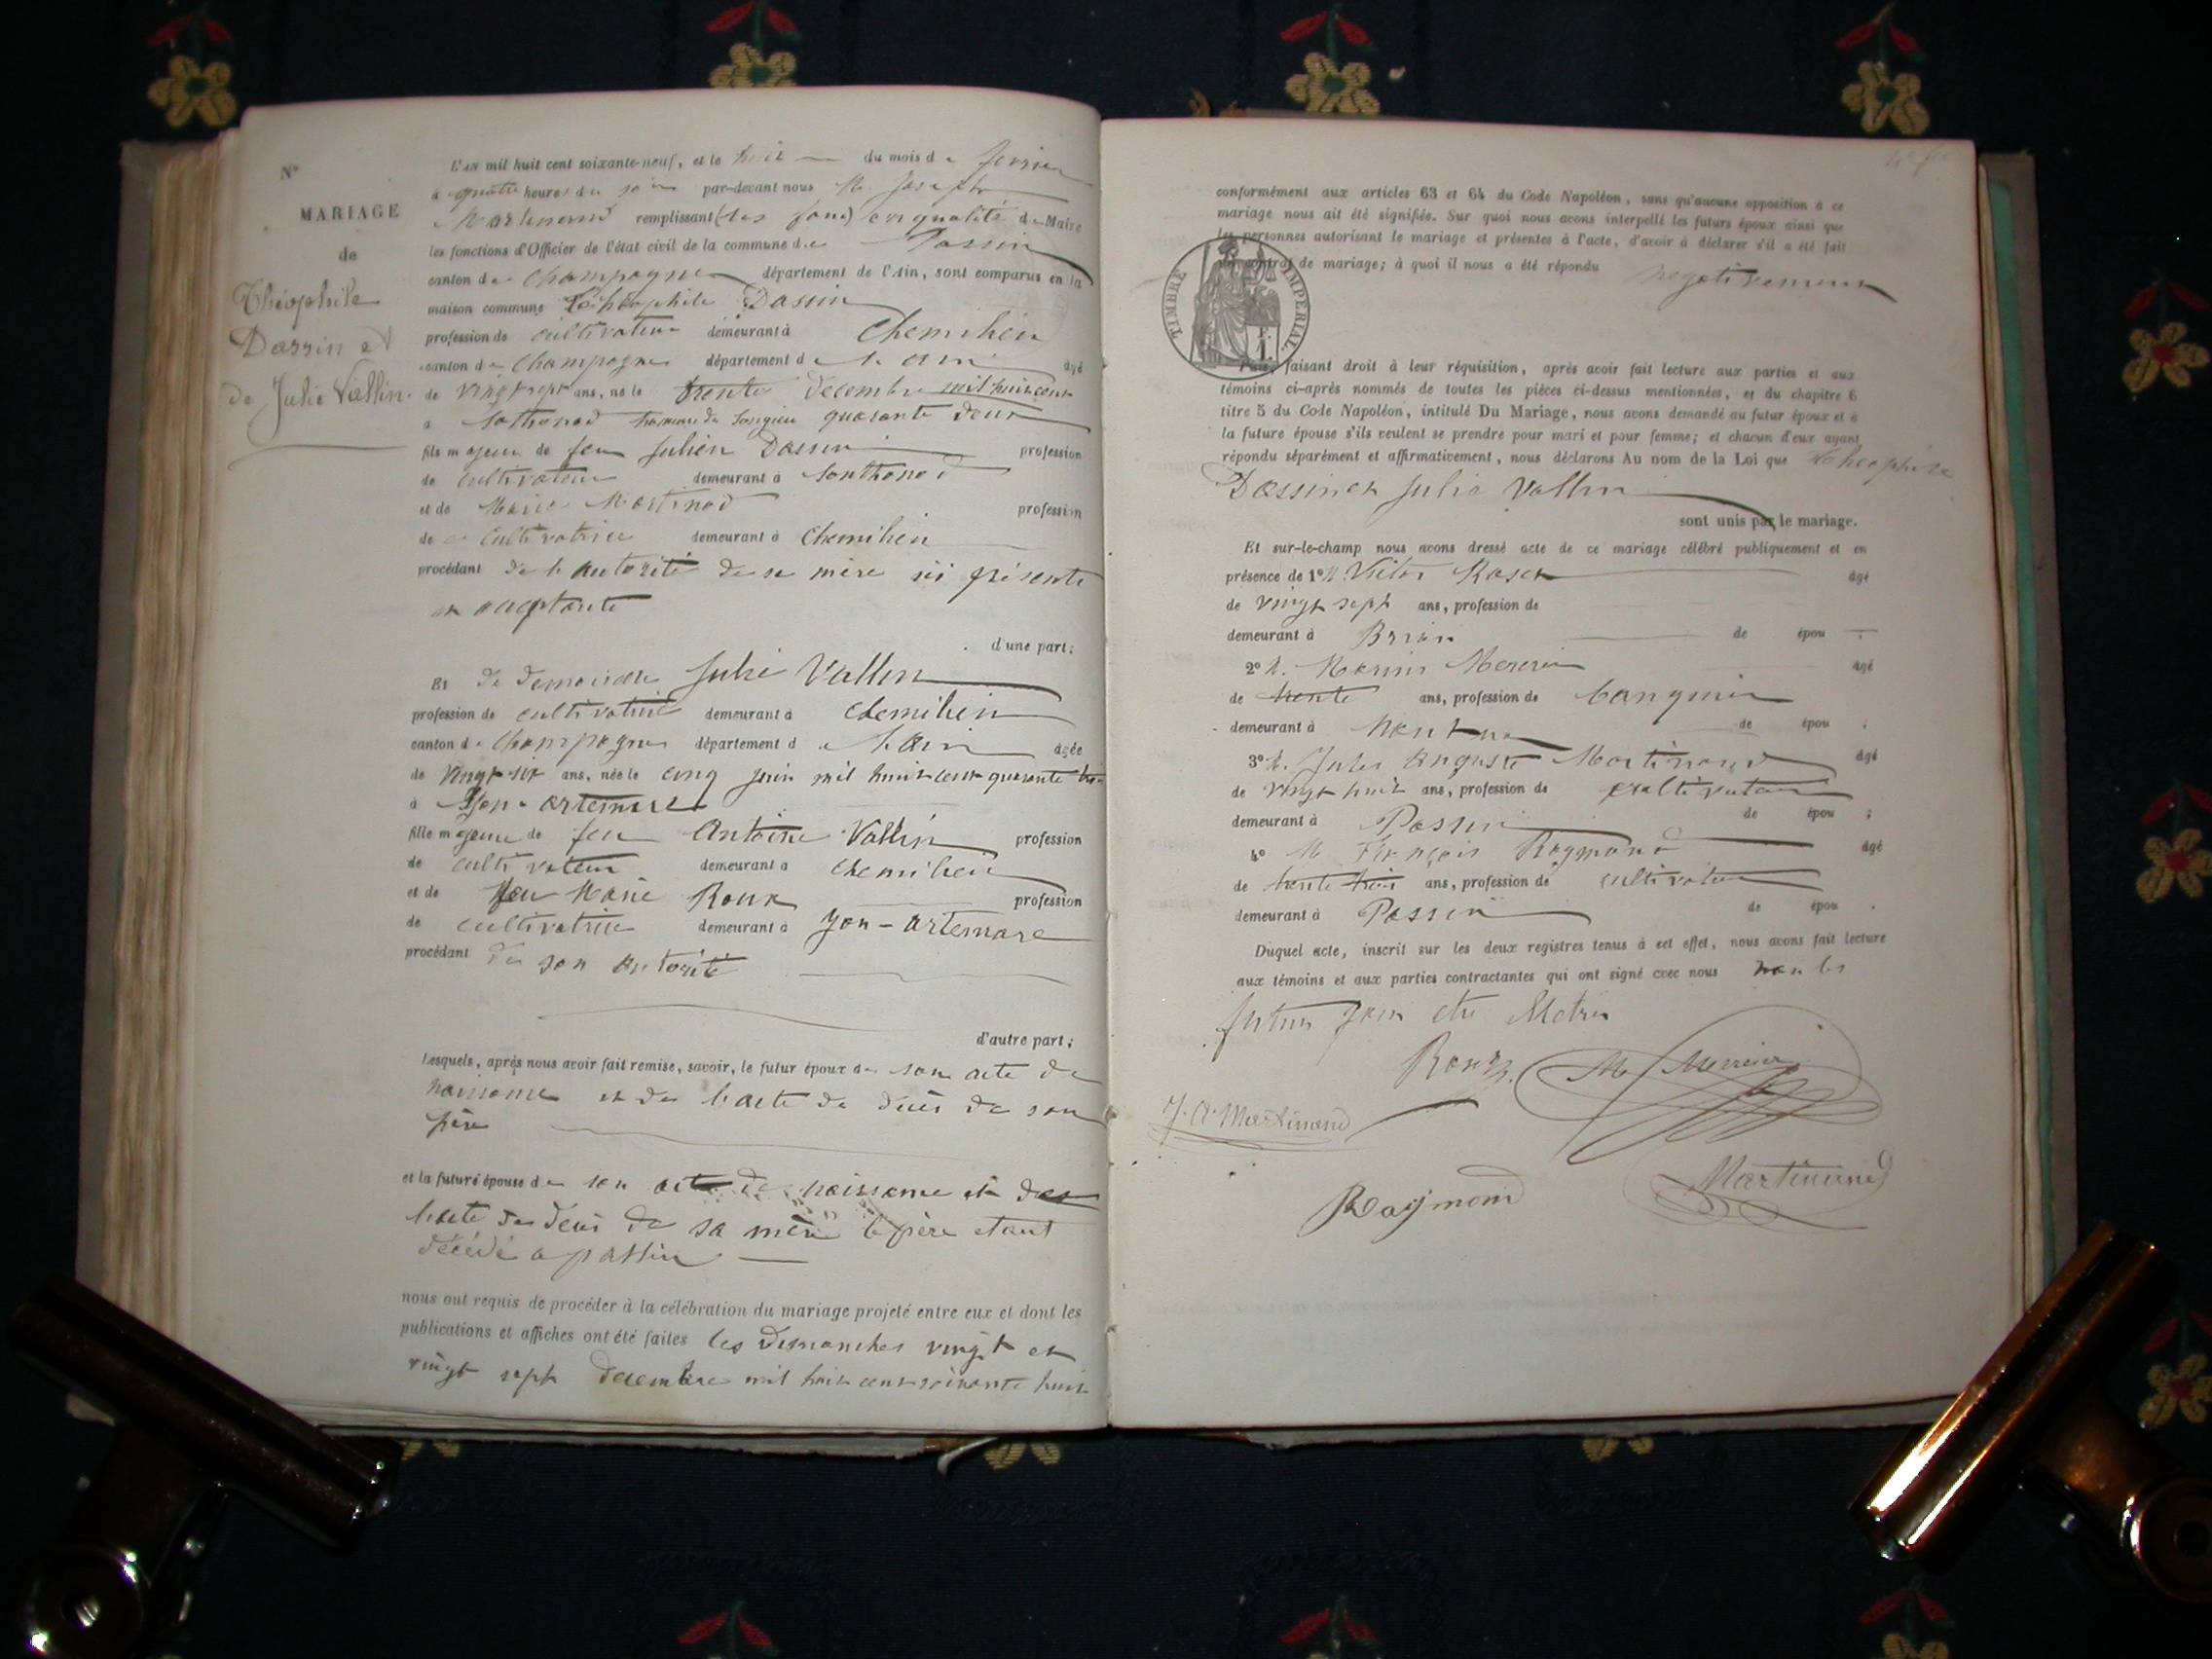 N°
MARIAGE
de
Théophile
Dassin et
de Julie Vallin.
L'AN mil huit cent soixante-neuf, et le huit du mois de fevrier
à quatre heures du soir par-devant nous M. Joseph
Martinand remplissant (les fonc) en qualité de Maire
les fonctions d'Officier de l'état civil de la commune de Passin
canton de Champagne département de l'Ain, sont comparus en la
maison commune Théophile Dassin
profession de cultivateur demeurant à Chemilieu
canton de Champagne département de l'ain âgé
de vingt sept ans, né le trente decembre mil huit cent
à Sothonod hameau de Songieu quarante deux
fils majeur de feu Julien Dassin profession
de cultivateur demeurant à Sonthonod
et de Marie Martinod profession
de cultivatrice demeurant à Chemilieu
procédant de l'autorité de sa mère ici présente
et acceptante
d'une part;
Et de demoiselle Julie Vallin
profession de cultivatrice demeurant à Chemilieu
canton de Champagne département de l'Ain âgée
de vingt six ans, née le cinq juin mil huit cent quarante trois
à Yon-artemare
fille majeure de feu Antoine Vallin profession
de cultivateur demeurant à Chemilieu
et de feu Marie Roux profession
de cultivatrice demeurant à Yon-artemare
procédant de son autorité
d'autre part;
Lesquels, après nous avoir fait remise, savoir, le futur époux de son acte de
naissance et de l'acte de décès de son
père
et la future épouse de son acte de naissance et de
l'acte de décès de sa mère le père etant
décédé a passin
nous ont requis de procéder à la célébration du mariage projeté entre eux et dont les
publications et affiches ont été faites les dimanches vingt et
vingt sept decembre mil huit cent soixante huit
conformément aux articles 63 et 64 du Code Napoléon, sans qu'aucune opposition à ce
mariage nous ait été signifiée. Sur quoi nous avons interpellé les futurs époux ainsi que
les personnes autorisant le mariage et présentes à l'acte, d'avoir à déclarer s'il a été fait
un contrat de mariage; à quoi il nous a été répondu negativement
TIMBRE IMPÉRIAL
Puis, faisant droit à leur réquisition, après avoir fait lecture aux parties et aux
témoins ci-après nommés de toutes les pièces ci-dessus mentionnées, et du chapitre 6
titre 5 du Code Napoléon, intitulé Du Mariage, nous avons demandé au futur époux et à
la future épouse s'ils veulent se prendre pour mari et pour femme; et chacun d'eux ayant
répondu séparément et affirmativement, nous déclarons Au nom de la Loi que Théophile
Dassin et Julie Vallin
sont unis par le mariage.
Et sur-le-champ nous avons dressé acte de ce mariage célébré publiquement et en
présence de 1° M. Victor âgé
de vingt sept ans, profession de
demeurant à de épou
2° M. Marius Mercier âgé
de trente ans, profession de
demeurant à Nantua de épou ;
3° M. Jules Auguste Martinand âgé
de vingt huit ans, profession de cultivateur
demeurant à Passin de épou ;
4° M François Raymond âgé
de trente trois ans, profession de cultivateur
demeurant à Passin de épou .
Duquel acte, inscrit sur les deux registres tenus à cet effet, nous avons fait lecture
aux témoins et aux parties contractantes qui ont signé avec nous non les
futurs
M Mercier
J. A. Martinand
Raymond
Martinand